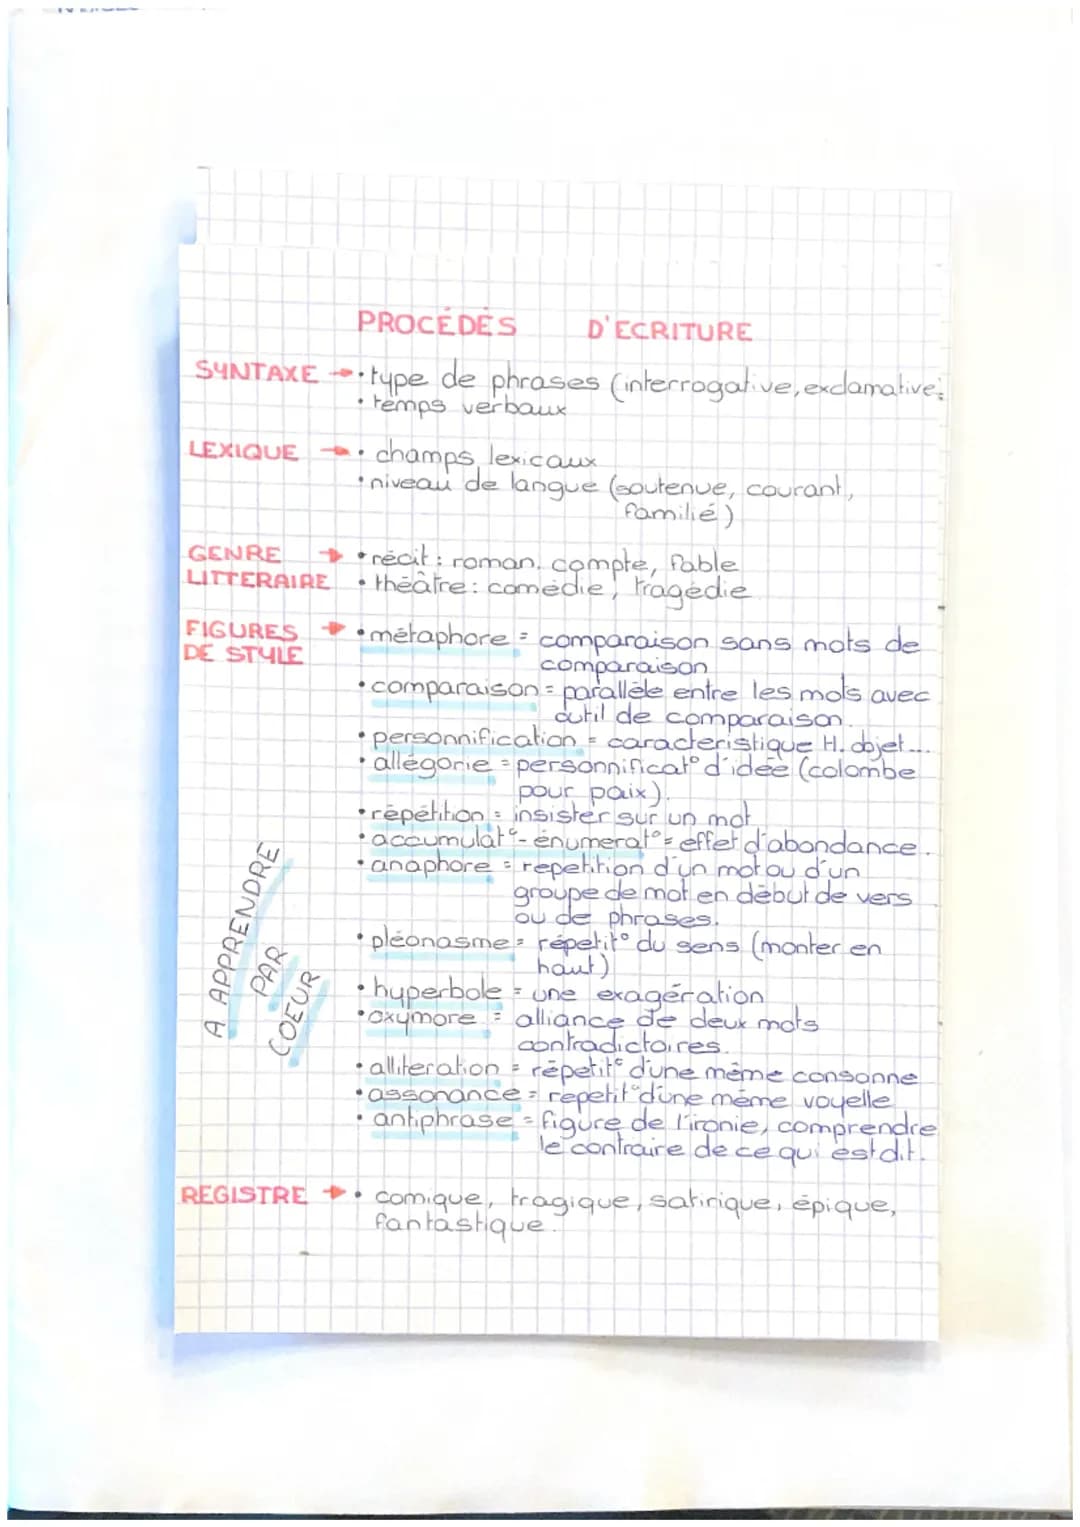 PROCÉDÉS D'ECRITURE
SYNTAXE → • type de phrases (interrogative, exclamative;
• temps verbaux
LEXIQUE → • champs lexicaux
• niveau de langue (soutenue, courant,
familié)
GENRE → • récit : roman, compte, fable
LITTERAIRE • théâtre : comédie, tragédie
FIGURES → • métaphore = comparaison sans mots de
DE STYLE
comparaison
• comparaison = parallèle entre les mots avec
outil de comparaison.
• personnification = caracteristique H. objet...
• allégorie = personnificat° d'idée (colombe
pour paix).
• répétition = insister sur un mot
• accumulat° - énumerat° = effet d'abondance.
• anaphore = repetition d'un mot ou d'un
groupe de mot en début de vers
ou de phrases.
• pléonasme = répetit° du sens (monter en
haut)
• hyperbole = une exagération
• oxymore = alliance de deux mots
contradictoires.
• alliteration = répetit° d'une même consonne
• assonance = repetit° d'une même voyelle
• antiphrase = figure de l'ironie, comprendre
le contraire de ce qui est dit.
A APPRENDRE
PAR
COEUR
REGISTRE → • comique, tragique, satirique, épique,
fantastique.